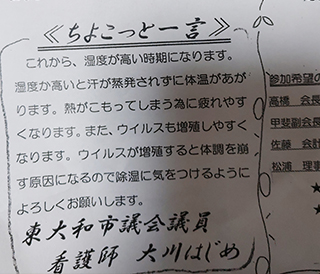 ≪ちよこっと一言≫
これから、湿度が高い時期になります。
湿度か高いと汗が蒸発されずに体温があが
ります。熱がこもってしまう為に疲れやす
くなります。また、ウイルスも増殖しやすく
なります。ウイルスが増殖すると体調を崩
す原因になるので除湿に気をつけるように
よろしくお願いします。
東大和市議会議員
看護師 大川はじめ
参加希望の
高橋 会長
甲斐副会長
佐藤 会計
松浦 理事
★
★